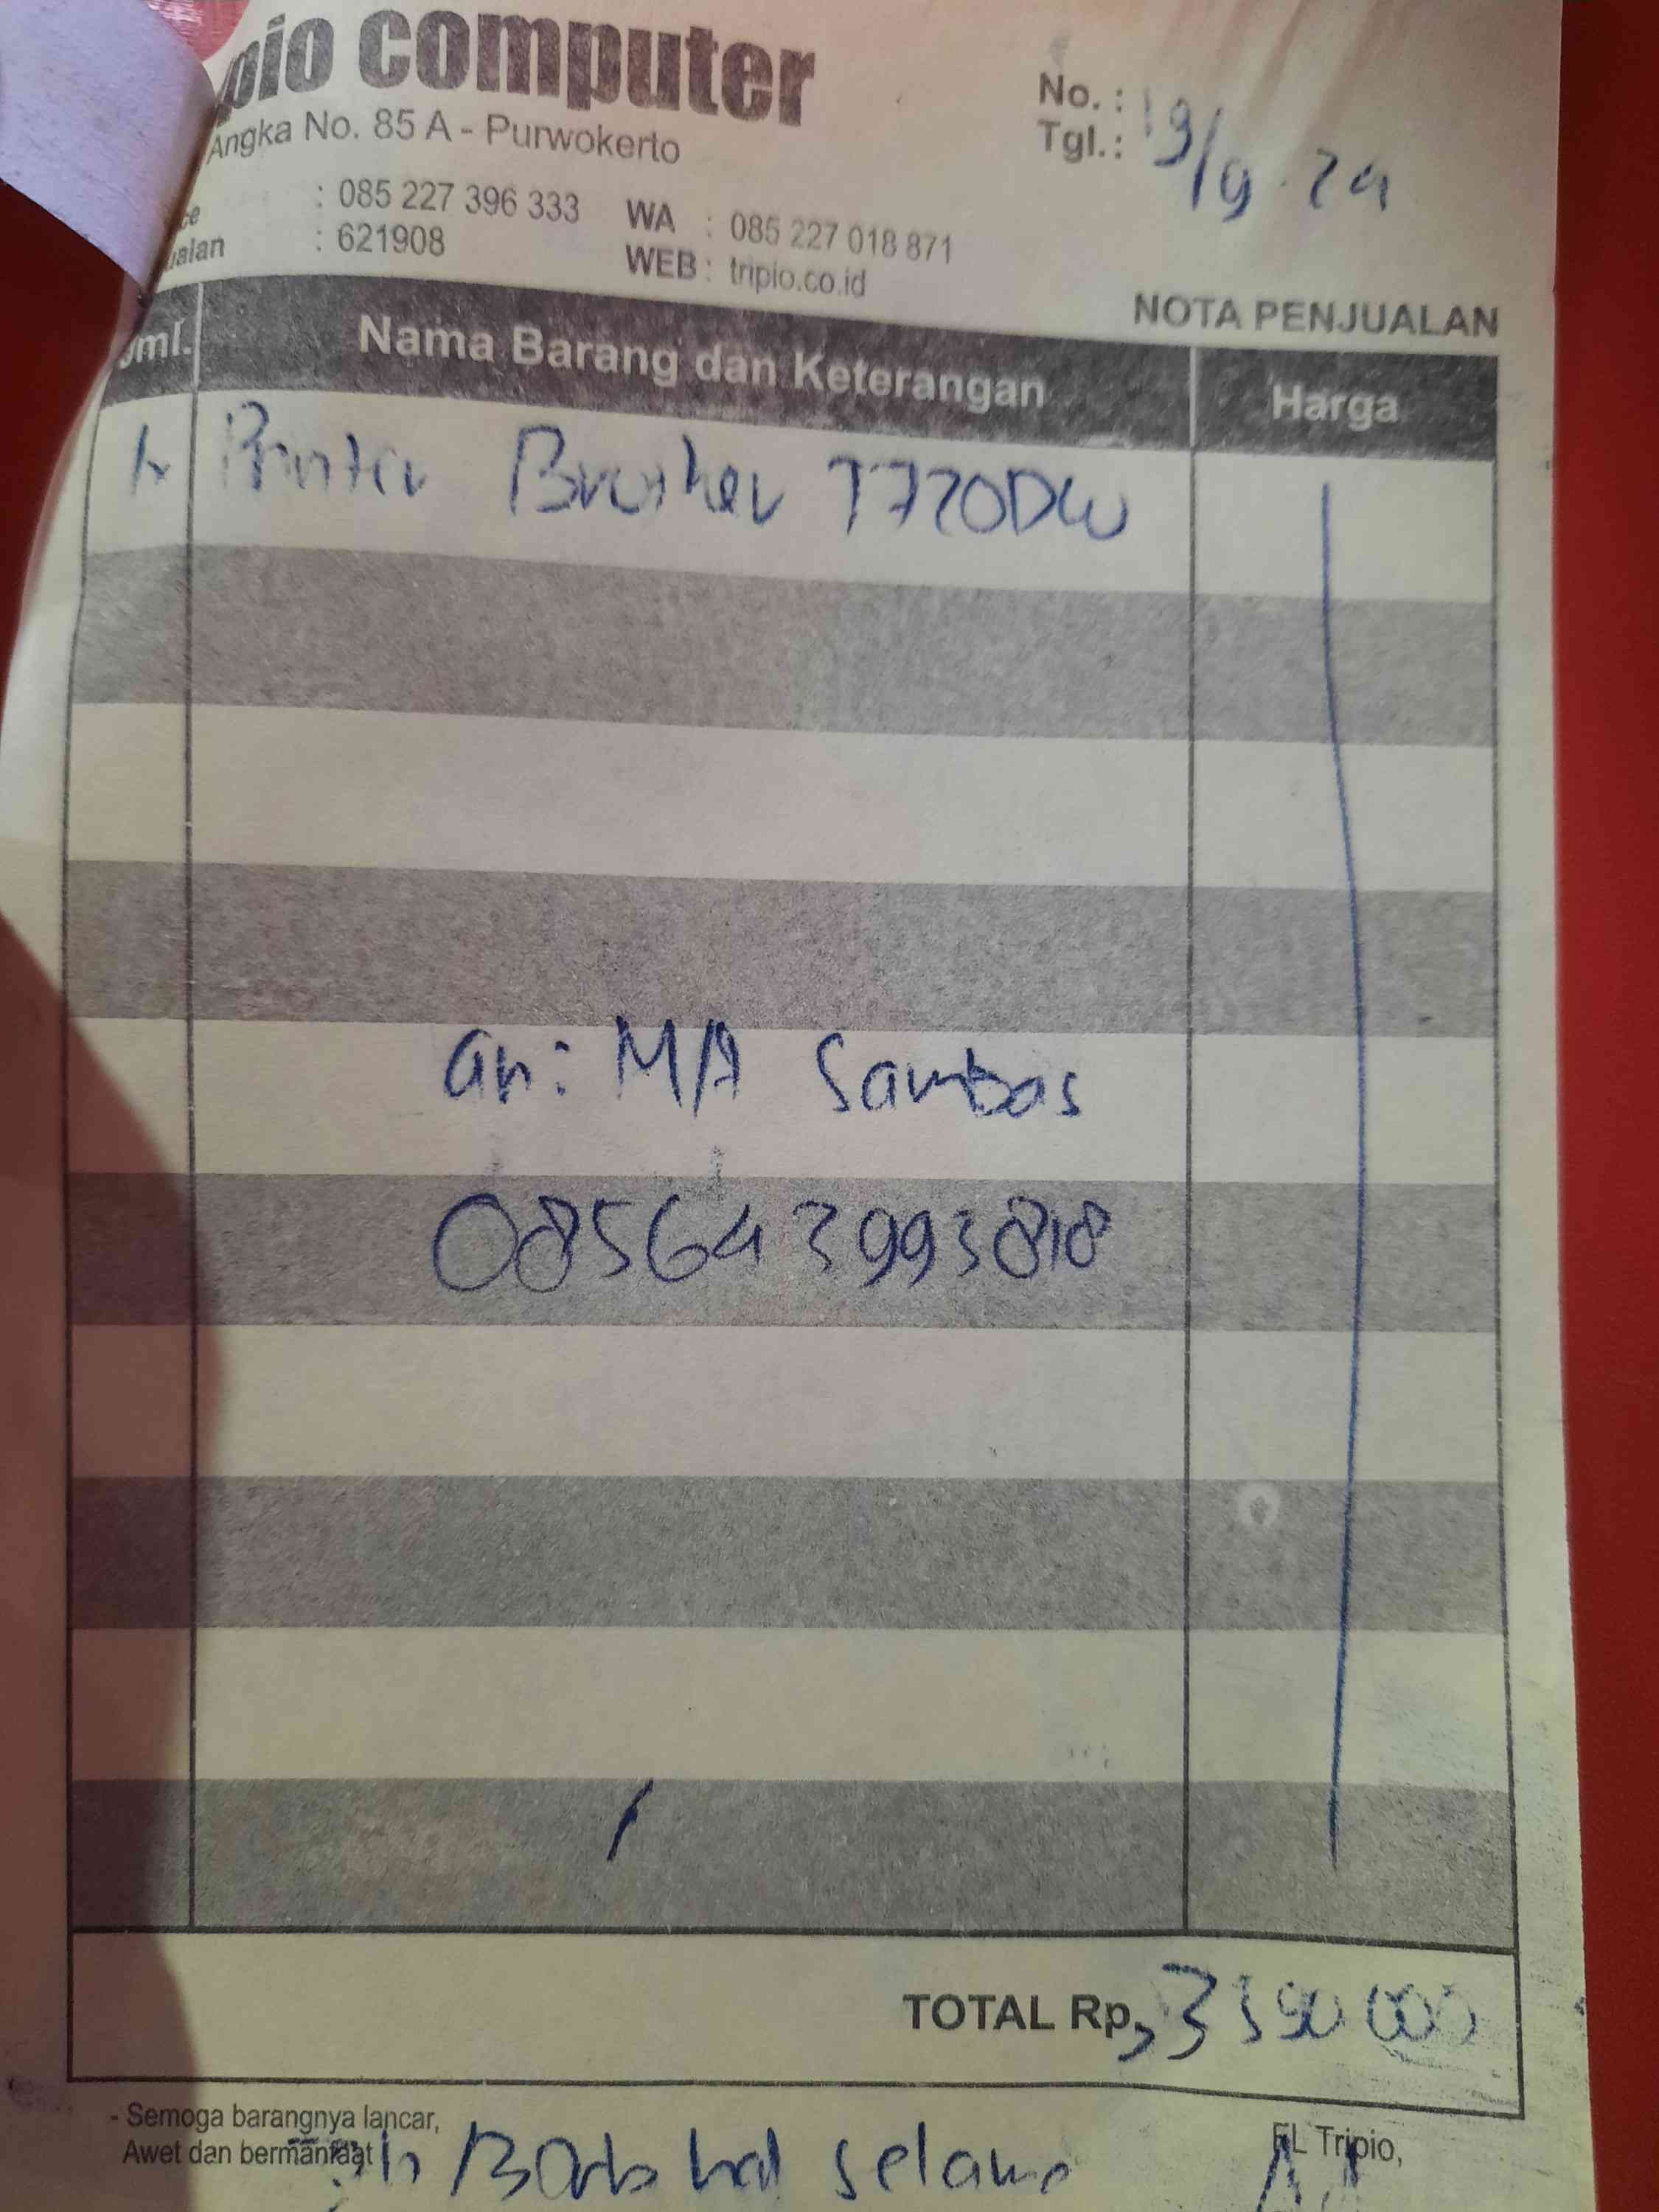 pio computer
Angka No. 85 A - Purwokerto
No. :
Tgl.: 19/9 - 24
ce : 085 227 396 333 WA : 085 227 018 871
ualan : 621908 WEB : tripio.co.id
NOTA PENJUALAN
Jml. Nama Barang dan Keterangan Harga
1 Printer Brother T720DW
an: MA Sambas
085643993818
TOTAL Rp, 3350000
- Semoga barangnya lancar,
Awet dan bermanfaat
EL Tripio,